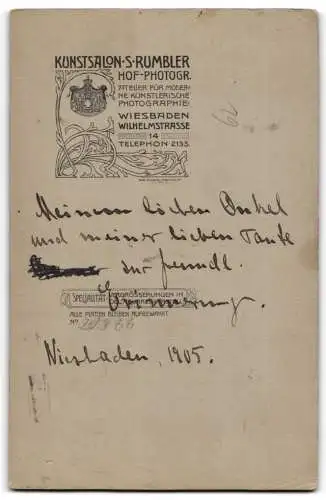 KUNSTSALON·S·RUMBLER
HOF-PHOTOGR.
ATELIER FÜR MODER-
NE KÜNSTLERISCHE
PHOTOGRAPHIE:
WIESBADEN
WILHELMSTRASSE
14
TELEPHON 2135
62
Meinem lieben Onkel
und meiner lieben Tante
zur freundl.
Erinnerung.
SPEZIALITÄT VERGRÖSSERUNGEN IN
ALLE PLATTEN BLEIBEN AUFBEWAHRT
No
Wiesbaden, 1905.